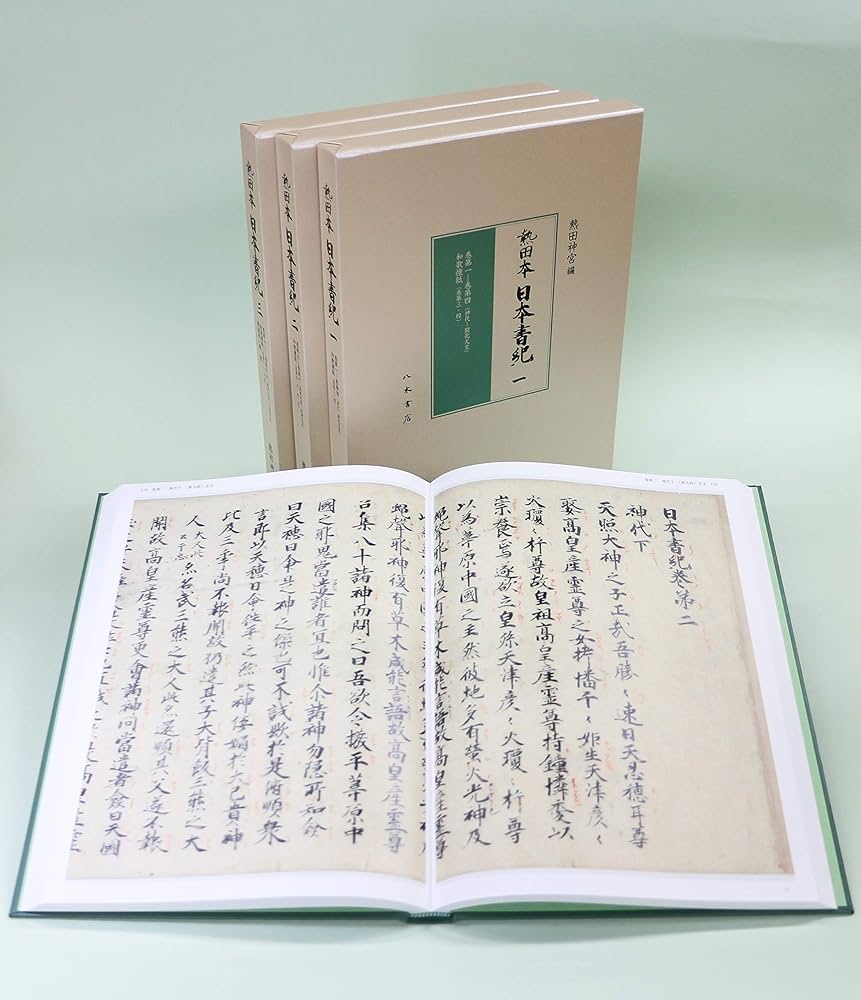 熱田本 日本書紀 三
熱田本 日本書紀 二
熱田本 日本書紀 一
熱田神宮 編
熱田本 日本書紀 一
巻第一―巻第四(神代―開化天皇)
和歌懐紙(巻第三・四)
八木書店
日本書紀巻第二
神代下
天照大神之子正哉吾勝〻速日天忍穂耳尊
娶高皇産霊尊之女栲幡千〻姫生天津彦〻
火瓊〻杵尊故皇祖高皇産霊尊特鐘憐愛以
崇養焉遂欲立皇孫天津彦〻火瓊〻杵尊
以為葦原中國之主然彼地多有螢火光神及
蝿聲邪神復有草木咸能言語故高皇産霊尊
蝿聲邪神復有草木咸能言語故高皇産霊尊
召集八十諸神而問之曰吾欲令撥平葦原中
國之邪鬼當遣誰者宜也惟尓諸神勿隠所知僉
曰天穂日命是神之傑也可不試歟於是俯順衆
言即以天穂日命往平之然此神佞媚於大己貴神
比及三年尚不報聞故仍遣其子大背飯三熊之大
人 大人此云于志 亦名武三熊之大人此亦還順其父遂不報
聞故高皇産霊尊更會諸神問當遣者僉曰天國